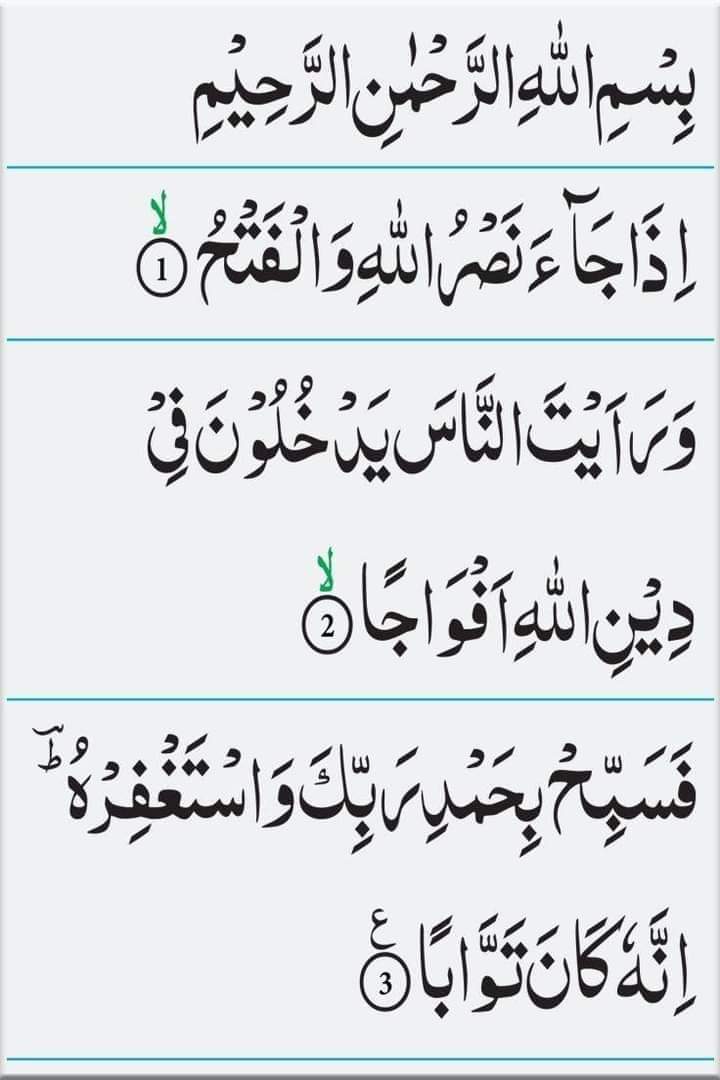 بِسْمِ اللهِ الرَّحْمٰنِ الرَّحِيْمِ
اِذَا جَآءَ نَصْرُ اللهِ وَالْفَتْحُ ۙ 1
وَرَاَيْتَ النَّاسَ يَدْخُلُوْنَ فِيْ
دِيْنِ اللهِ اَفْوَاجًا ۙ 2
فَسَبِّحْ بِحَمْدِ رَبِّكَ وَاسْتَغْفِرْهُ ؕ
اِنَّهٗ كَانَ تَوَّابًا ع 3